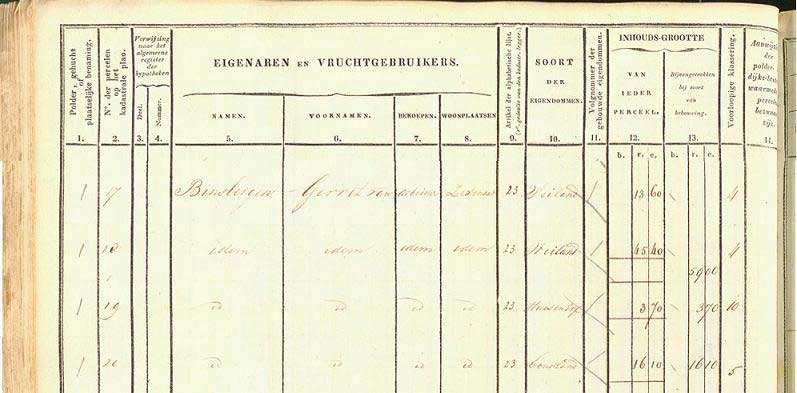 Verwijzing naar het algemeene register der hypotheken
EIGENAREN EN VRUCHTGEBRUIKERS.
INHOUDS-GROOTTE
Polder, gehucht of plaatselijke benaming.
N°. der perceelen op het kadastrale plan.
Deel.
Nommer.
NAMEN.
VOORNAMEN.
BEROEPEN.
WOONPLAATSEN
Artikel der alphabetische lijst.
SOORT DER EIGENDOMMEN.
Volgnommer der gebouwde eigendommen.
VAN IEDER PERCEEL.
Bijeengetrokken bij soort van bebouwing.
Voorloopige klassering.
1. 2. 3. 4. 5. 6. 7. 8. 9. 10. 11. 12. 13. 14.
b. r. e. b. r. e.
1 17 Gerrit van 23 Weiland 13 60 4
1 18 idem idem idem idem 23 Weiland 45 40 4
59 00
1 19 id id id id 23 3 70 3 70 10
1 20 id id id id 23 bouwland 16 10 16 10 5